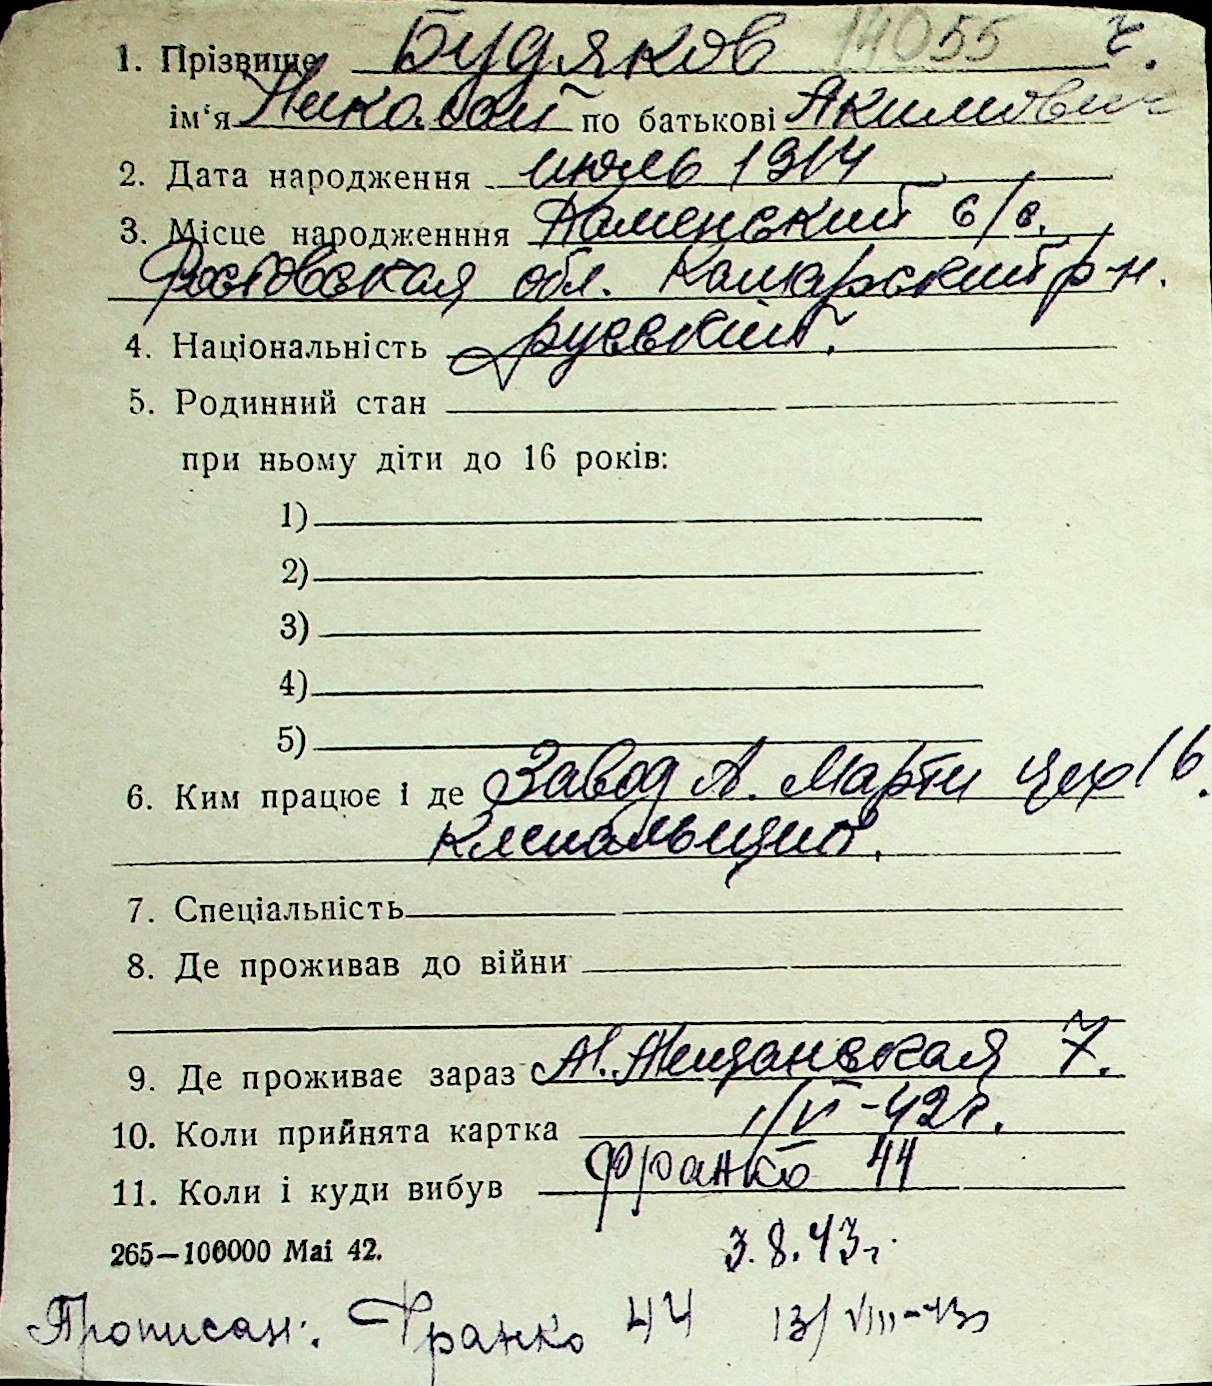 1. Прізвище Будяков 14055 г.
ім‘я Николай по батькові Акимович
2. Дата народження июль 1914
3. Місце народженння Каменский с/с.
Ростовская обл. р-н.
4. Національність русский.
5. Родинний стан
при ньому діти до 16 років:
1)
2)
3)
4)
5)
6. Ким працює і де Завод А. Марти цех 16.
7. Спеціальність
8. Де проживав до війни
9. Де проживає зараз М. Мещанская 7.
10. Коли прийнята картка 1/VI-42г.
11. Коли і куди вибув Франко 44
265—100000 Mai 42. 3.8.43г.
Прописан: Франко 44 13/VIII-43